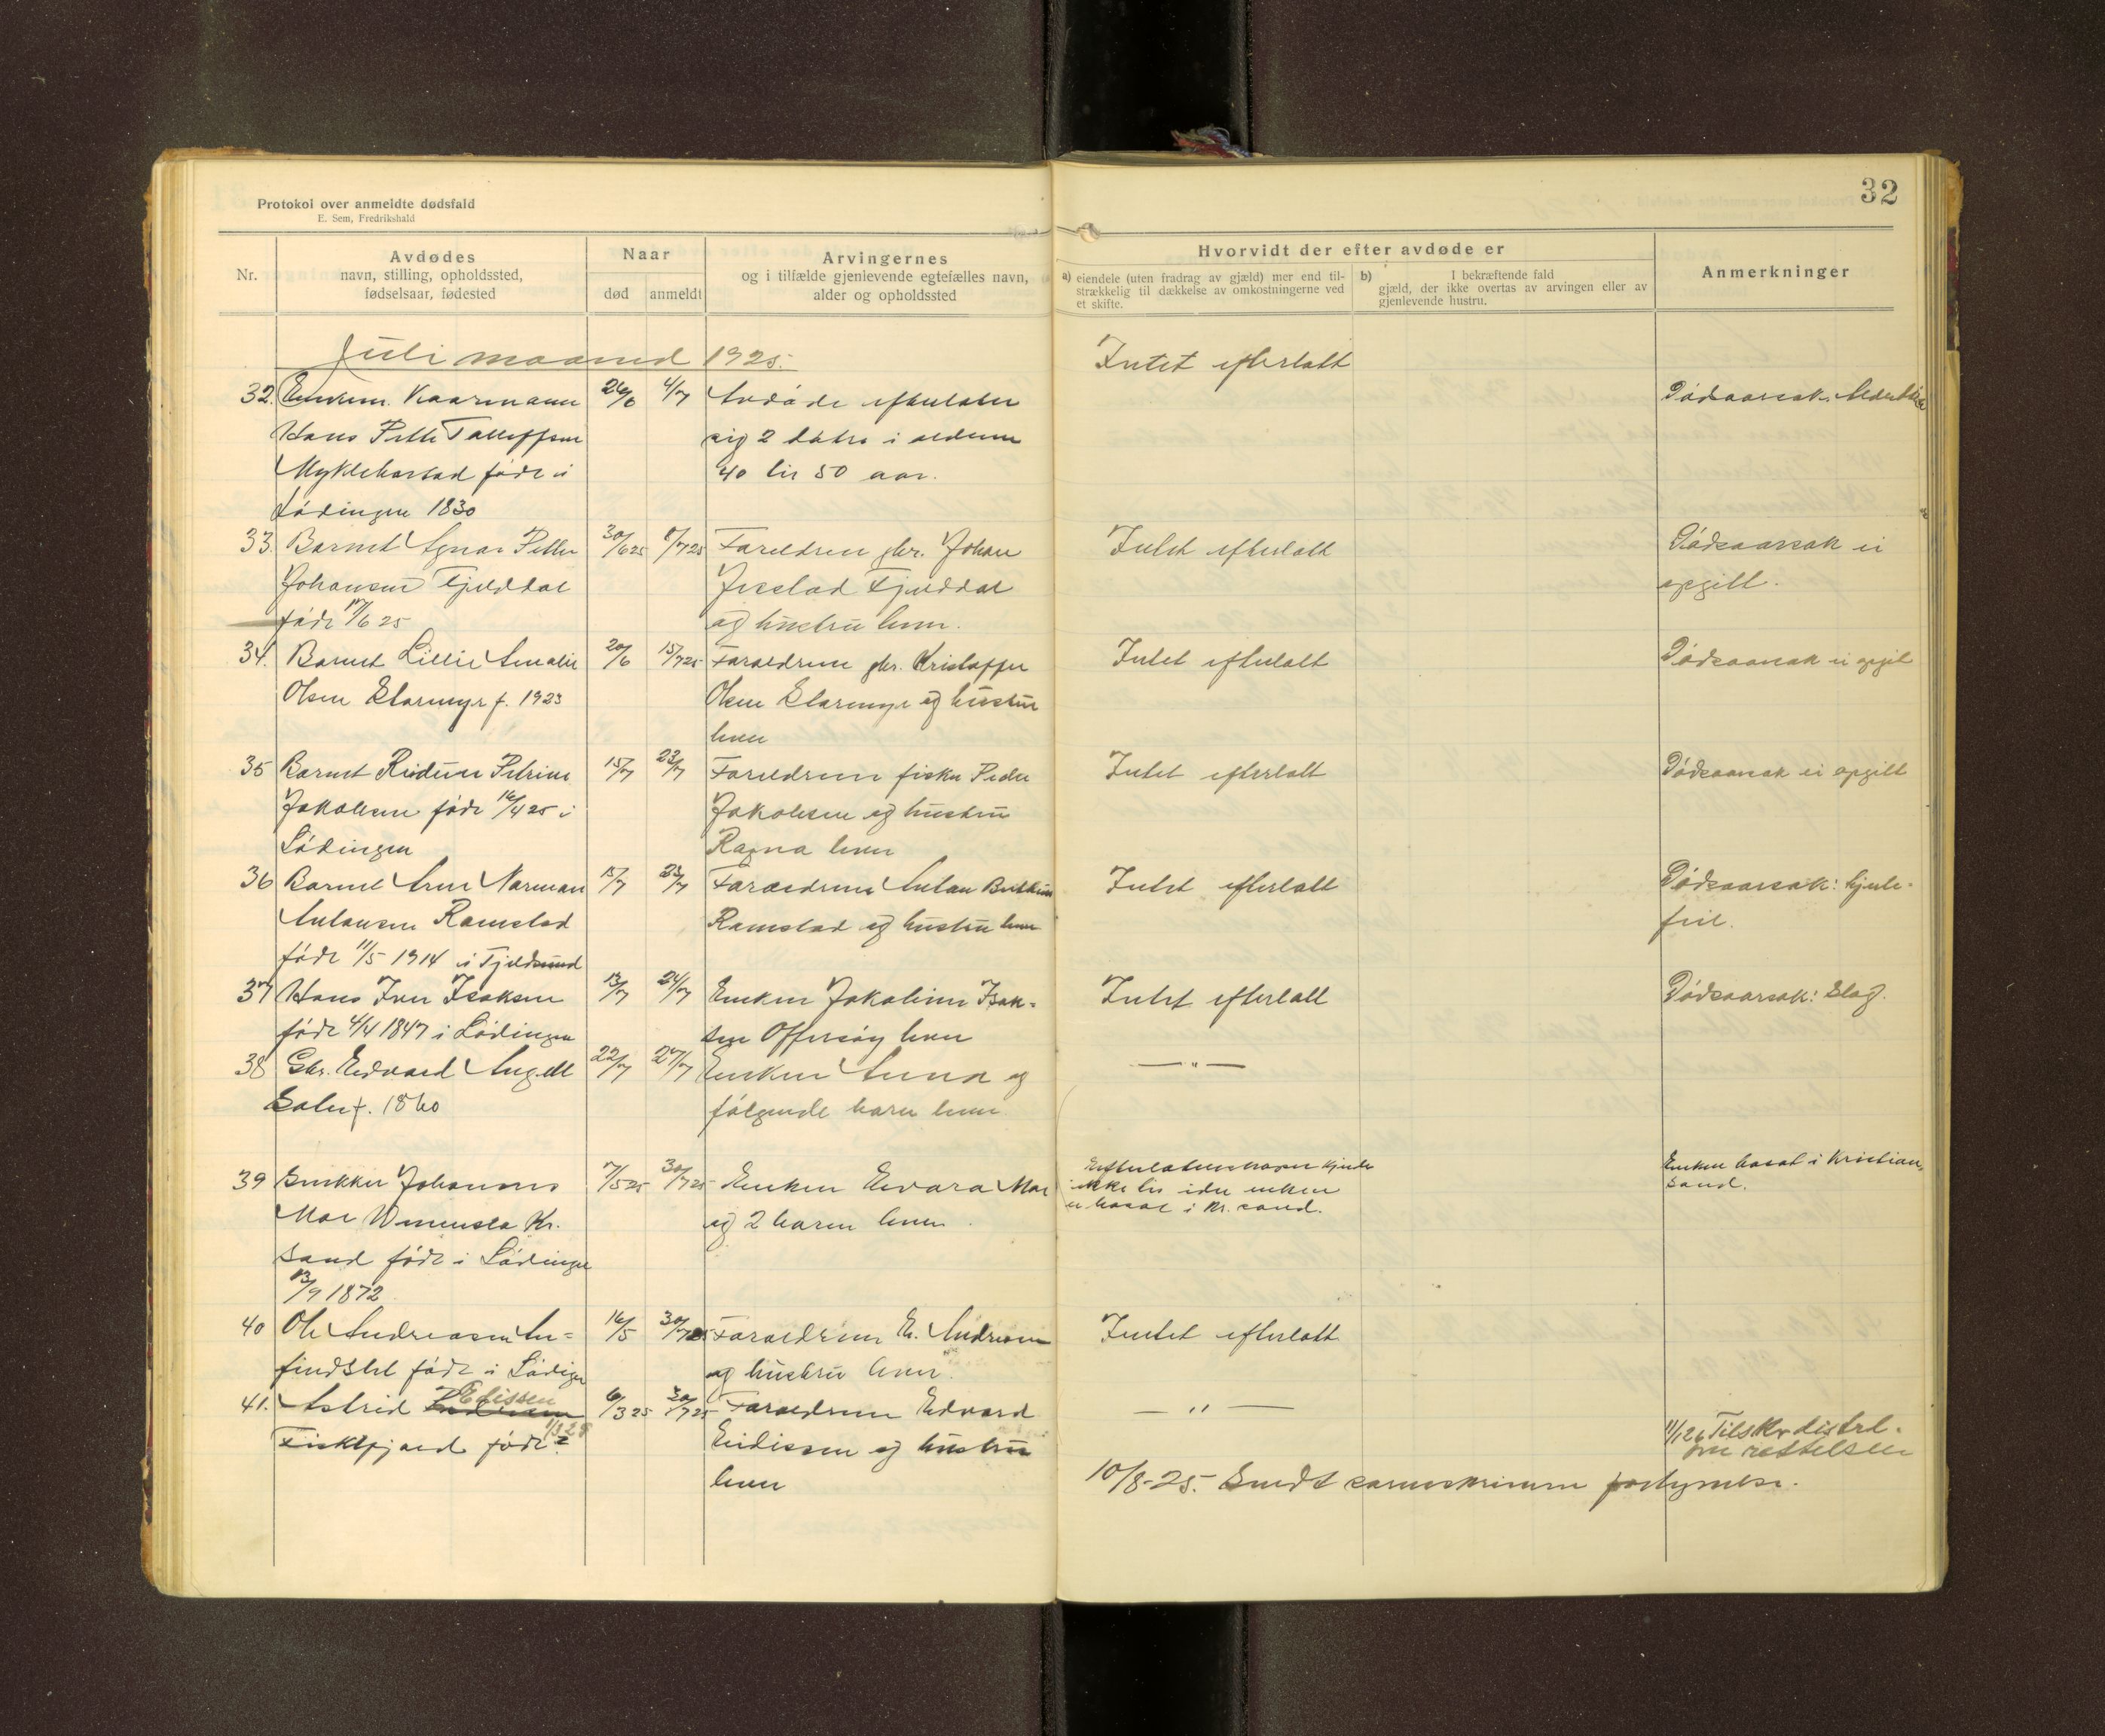 32
Protokol over anmeldte dødsfald
E. Sem, Fredrikshald
Nr.
Avdødes
navn, stilling, opholdssted,
fødselsaar, fødested
Naar
død
anmeldt
Arvingernes
og i tilfælde gjenlevende egtefælles navn,
alder og opholdssted
Hvorvidt der efter avdøde er
a) eiendele (uten fradrag av gjæld) mer end til-
strækkelig til dækkelse av omkostningerne ved
et skifte.
b) I bekræftende fald
gjæld, der ikke overtas av arvingen eller av
gjenlevende hustru.
Anmerkninger
Juli maaned 1925.
32. Enkem. Kaarmann
Hans Peter Tollefsen
Myklebostad født i
Lødingen 1830
26/6
4/7
Avdøde efterlater
sig 2 døtre i alderen
40 til 50 aar.
Intet efterlatt
Dødsaarsak:
33. Barnet Agnar Petter
Johansen Fjelddal
født 17/6 25
30/6 25
8/7 25
Foreldrene gbr. Johan
Fjelddal
og hustru lever.
Intet efterlatt
Dødsaarsak ei
opgitt.
34. Barnet Lillie Amalie
Olsen Stormyr f. 1923
20/6
15/7 25
Foreldrene gbr. Kristoffer
Olsen Stormyr og hustru
lever
Intet efterlatt
Dødsaarsak ei opgit
35 Barnet Reidun Petrine
Jakobsen født 16/4 25 i
Lødingen
15/7
23/7
Foreldrene fisker Peder
Jakobsen og hustru
Ragna lever
Intet efterlatt
Dødsaarsak ei opgitt
36 Barnet Arne Norman
Antonsen Ramstad
født 11/5 1914 i Tjeldsund
15/7
23/7
Foreldrene Anton
Ramstad og hustru lever
Intet efterlatt
Dødsaarsak: hjerte-
feil.
37 Hans Iver Isaksen
født 4/4 1847 i Lødingen
13/7
24/7
Enken Jakobine Isak-
sen Offersøy lever
Intet efterlatt
Dødsaarsak: Slag.
38 Gbr. Edvard Angell
f. 1860
22/7
27/7
Enken Anna og
følgende barn lever
— " —
39 Snekker Johannes
Moe Kr.
sand født i Lødingen
13/9 1872
7/5 25
30/7 25
Enken Moe
og 2 barn lever.
kjendes
ikke til idet enken
er bosat i Kr. sand.
Enken bosat i Kristian-
sand.
40 Ole Andreasen
født i Lødingen
16/5
30/7 25
Foreldrene E. Andreasen
og hustru lever.
Intet efterlatt
41. Astrid Edissen
Fiskfjord født 1/3 25
6/3 25
30/7 25
Foreldrene Edvard
og hustru
lever
— " —
11/1 26 Tilskr. distrl.
om rettelsen
10/8-25. Sendt sorenskriveren